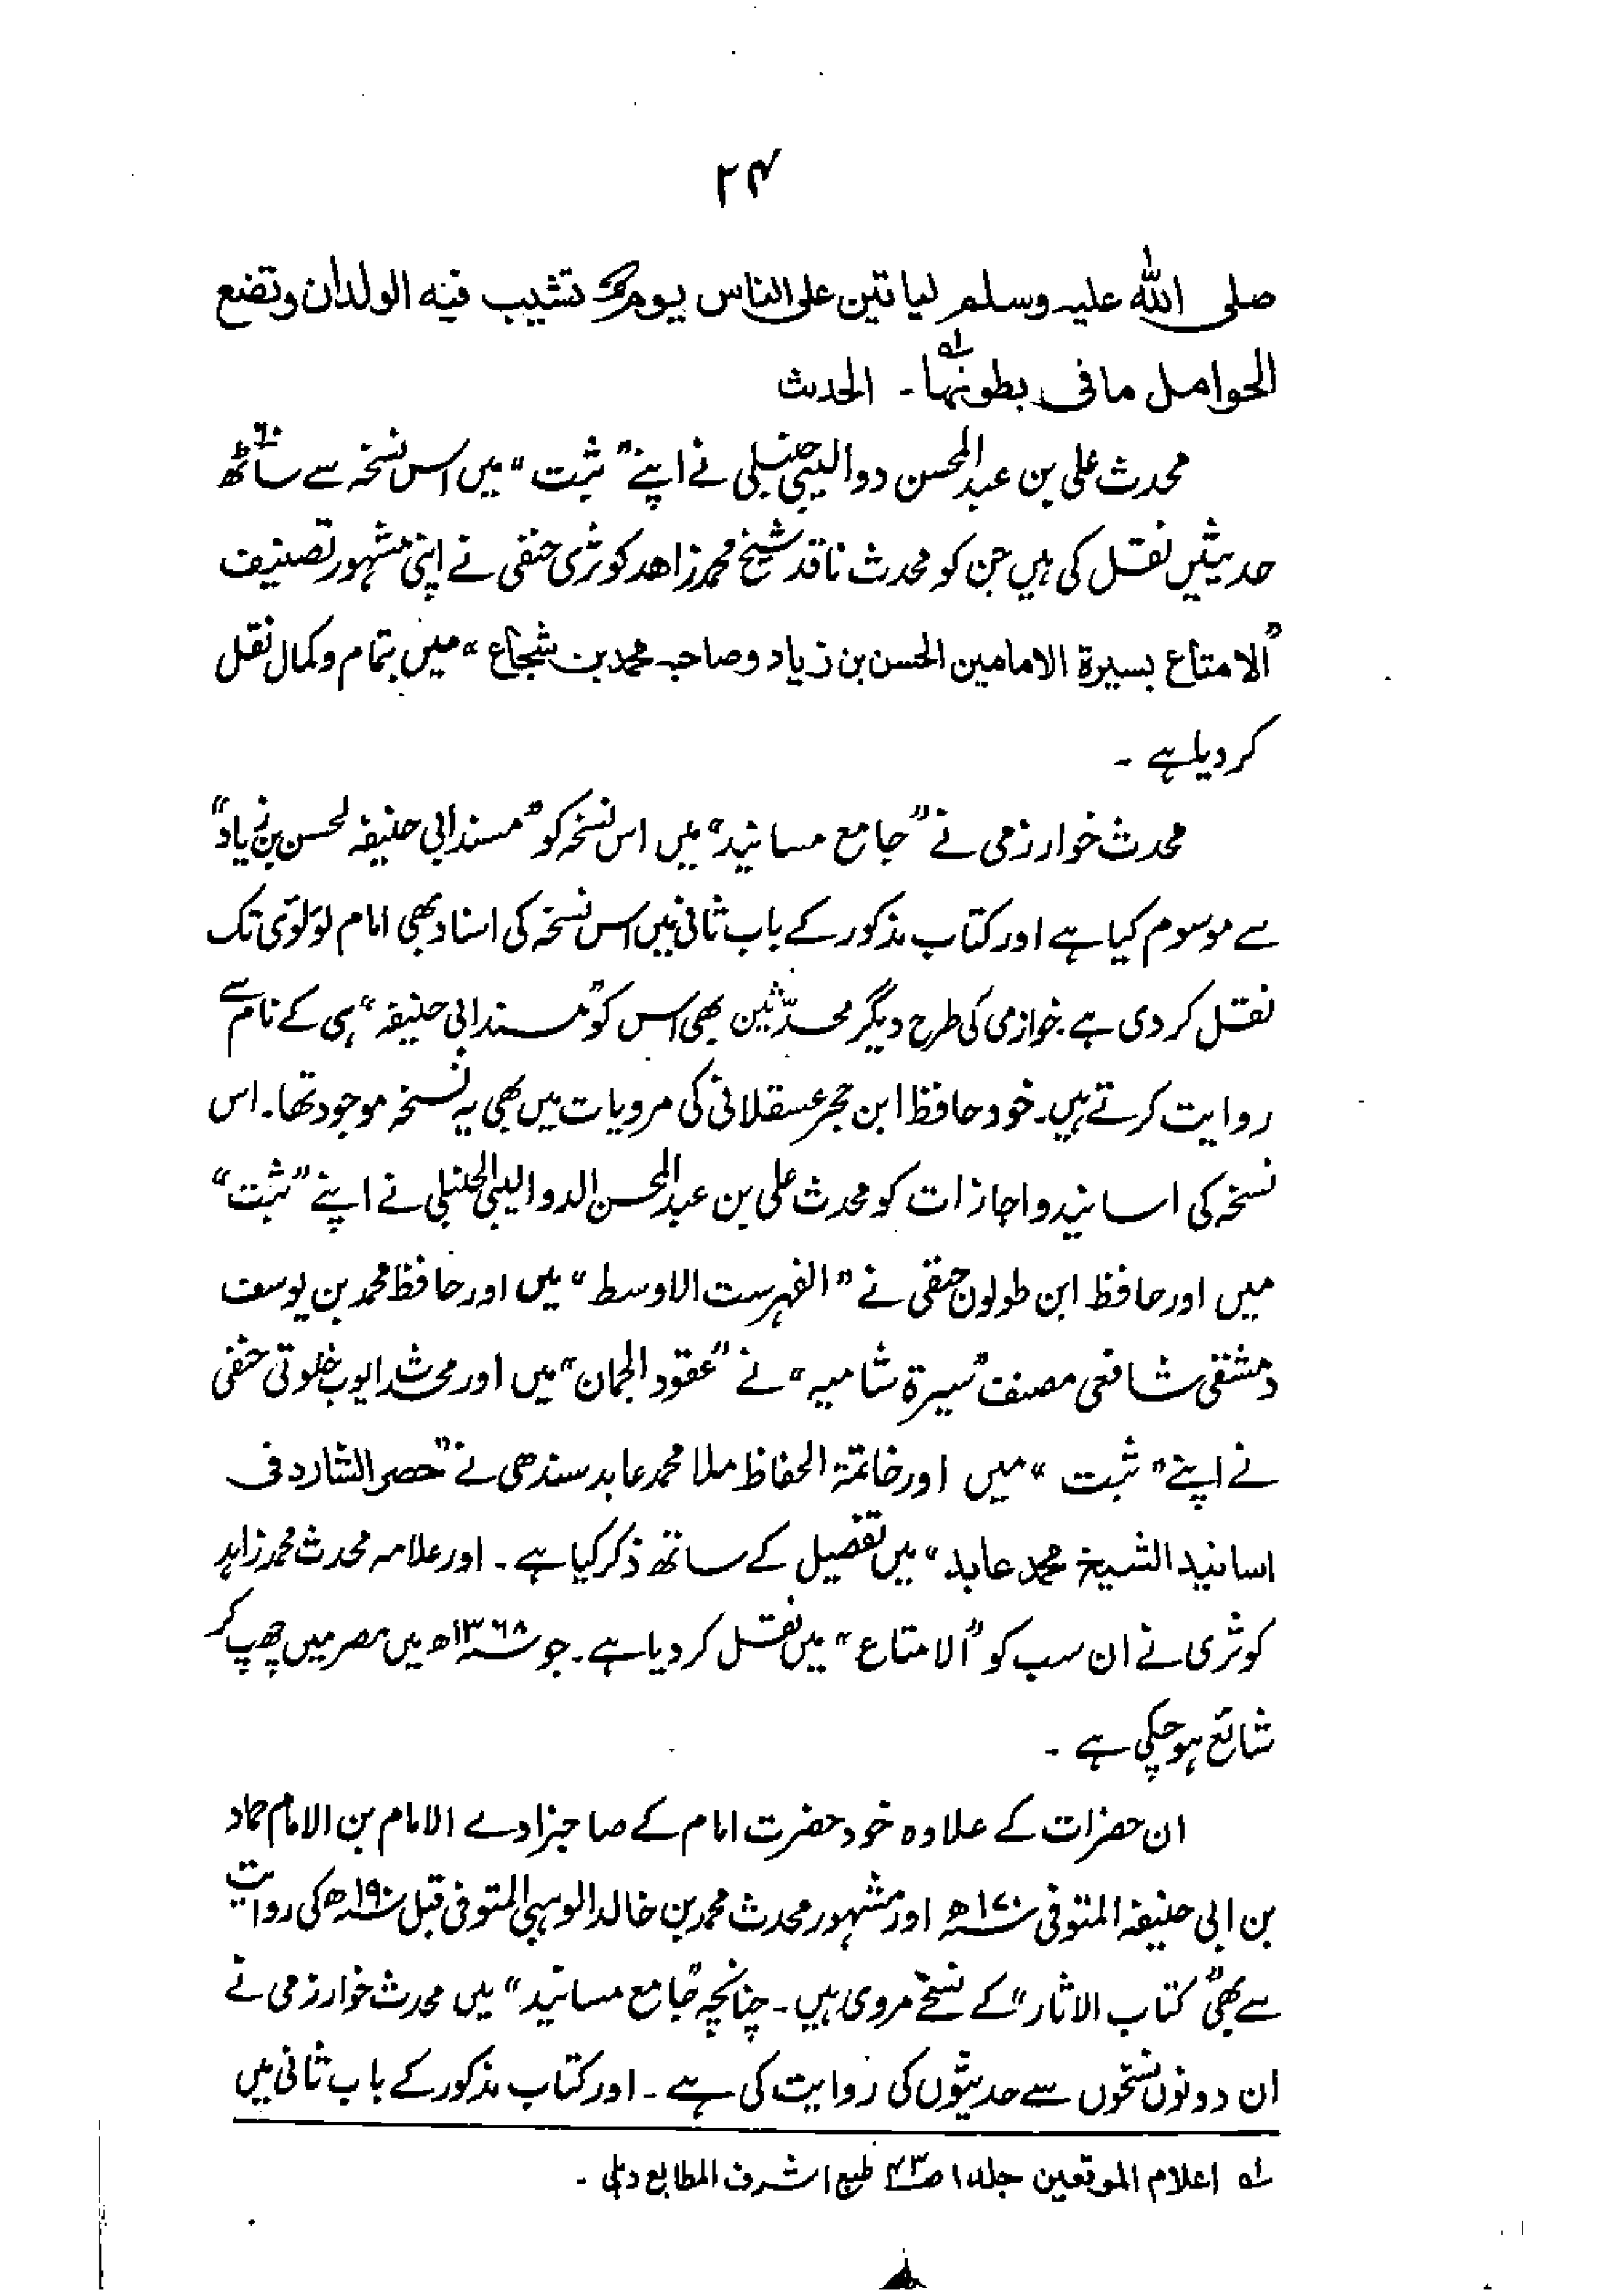 ۲۴
صلی اللہ علیہ وسلم لیاتین علی الناس یوم تشیب فیہ الولدان وتضع
الحوامل مافی بطونہا۔ الحدث
محدث علی بن عبدالمحسن دوالیبی حنبلی نے اپنے ”ثبت“ میں اس نسخہ سے ساٹھ
حدیثیں نقل کی ہیں جن کو محدث ناقد شیخ محمد زاھد کوثری حنفی نے اپنی مشہور تصنیف
”الامتاع بسیرة الامامین الحسن بن زیاد وصاحبہ محمد بن شجاع“ میں بتمام وکمال نقل
کر دیا ہے ۔
محدث خوارزمی نے ”جامع مسانید“ میں اس نسخہ کو ”مسند ابی حنیفہ لحسن بن زیاد“
سے موسوم کیا ہے اور کتاب مذکور کے باب ثانی میں اس نسخہ کی اسناد بھی امام لؤلؤی تک
نقل کر دی ہے۔ خوازمی کی طرح دیگر محدّثین بھی اس کو ”مسند ابی حنیفہ“ ہی کے نام سے
روایت کرتے ہیں۔ خود حافظ ابن حجر عسقلانی کی مرویات میں بھی یہ نسخہ موجود تھا۔ اس
نسخہ کی اسانید و اجازات کو محدث علی بن عبدالمحسن الدوالیبی الحنبلی نے اپنے ”ثبت“
میں اور حافظ ابن طولون حنفی نے ”الفہرست الاوسط“ میں اور حافظ محمد بن یوسف
دمشقی شافعی مصنف ”سیرة شامیہ“ نے ”عقود الجمان“ میں اور محدث ایوب خلوتی حنفی
نے اپنے ”ثبت“ میں اور خاتمة الحفاظ ملا محمد عابد سندھی نے ”حصر الشارد فی
اسانید الشیخ محمد عابد“ میں تفصیل کے ساتھ ذکر کیا ہے ۔ اور علامہ محدث محمد زاہد
کوثری نے ان سب کو ”الامتاع“ میں نقل کر دیا ہے۔ جو ۱۳۶۸ھ میں مصر میں چھپ کر
شائع ہو چکی ہے ۔
ان حضرات کے علاوہ خود حضرت امام کے صاحبزادے الامام بن الامام حماد
بن ابی حنیفہ المتوفی ۱۷۰ھ اور مشہور محدث محمد بن خالد الوہبی المتوفی قبل ۱۹۰ھ کی روایت
سے بھی ”کتاب الاثار“ کے نسخے مروی ہیں ۔ چنانچہ ”جامع مسانید“ میں محدث خوارزمی نے
ان دونوں نسخوں سے حدیثوں کی روایت کی ہے ۔ اور کتاب مذکور کے باب ثانی میں
لہ اعلام الموقعین جلد ۱ ص۴۳ طبع اشرف المطابع دہلی ۔